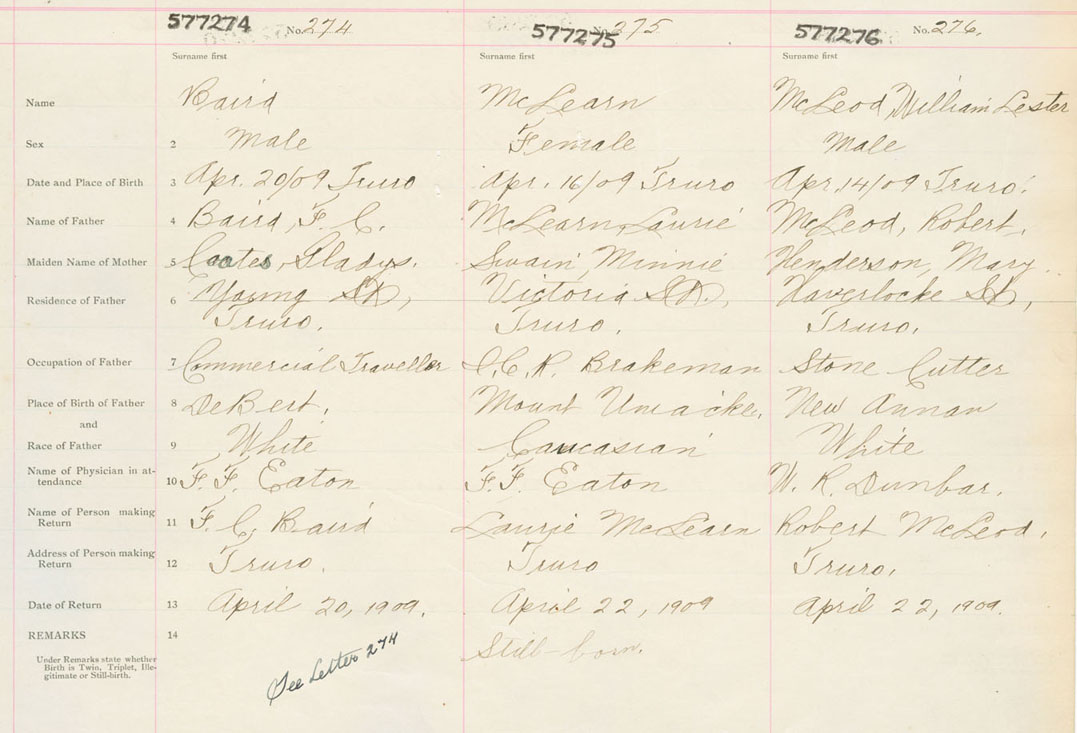 577274 No. 274 577275 No. 275 577276 No. 276.
Surname first Surname first Surname first
Name Baird McLearn McLeod, William Lester
Sex 2 Male Female Male
Date and Place of Birth 3 Apr. 20/09 Truro Apr. 16/09 Truro Apr. 14/09 Truro.
Name of Father 4 Baird, F. C. McLearn, Laurie McLeod, Robert.
Maiden Name of Mother 5 Coates, Gladys. Swain, Minnie Henderson, Mary.
Residence of Father 6 Young St., Victoria St., Haverlocke St.,
Truro. Truro. Truro.
Occupation of Father 7 Commercial Traveller I.C.R. Brakeman Stone Cutter
Place of Birth of Father 8 DeBert. Mount Uniacke. New Annan
and
Race of Father 9 White Caucasian White
Name of Physician in at-
tendance 10 F. F. Eaton F. F. Eaton W. R. Dunbar.
Name of Person making
Return 11 F. C. Baird Laurie McLearn Robert McLeod.
Address of Person making
Return 12 Truro. Truro Truro.
Date of Return 13 April 20, 1909. April 22, 1909 April 22, 1909.
REMARKS 14
Under Remarks state whether
Birth is Twin, Triplet, Ille-
gitimate or Still-birth.
See Letter 274
Still-born.